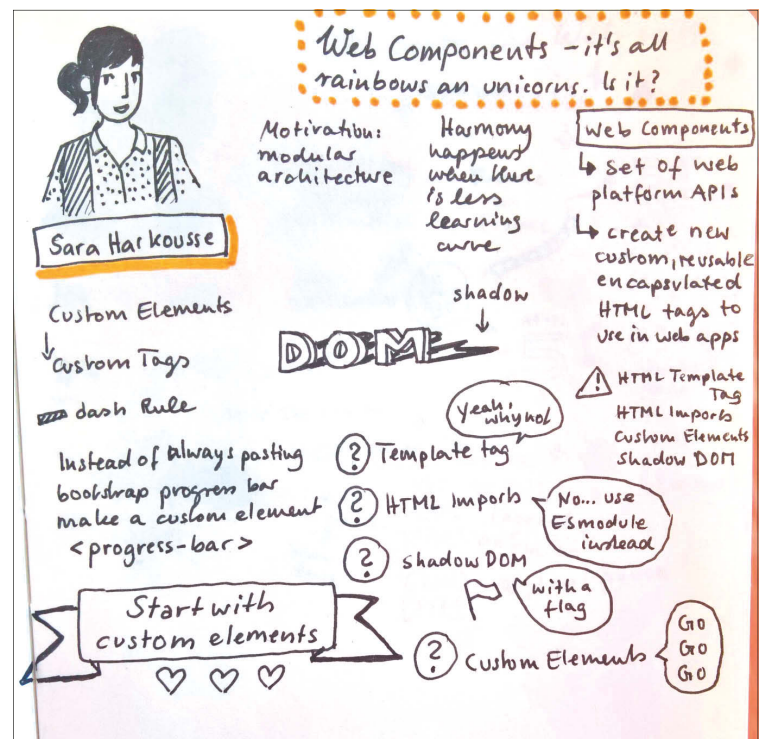 Web Components - it's all
rainbows an unicorns. Is it?
Sara Harkousse
Motivation:
modular
architecture
Harmony
happens
when there
is less
learning
curve
Web Components
↳ Set of web
platform APIs
↳ create new
custom, reusable
encapsulated
HTML tags to
use in web apps
⚠ HTML Template
Tag
HTML Imports
Custom Elements
Shadow DOM
Custom Elements
↓
Custom Tags
dash Rule
shadow
↓
DOM
Instead of always pasting
bootstrap progress bar
make a custom element
<progress-bar>
? Template tag
Yeah,
why not
? HTML Imports
No... use
ESmodule
instead
? shadow DOM
with a
flag
? Custom Elements
Go
Go
Go
Start with
custom elements